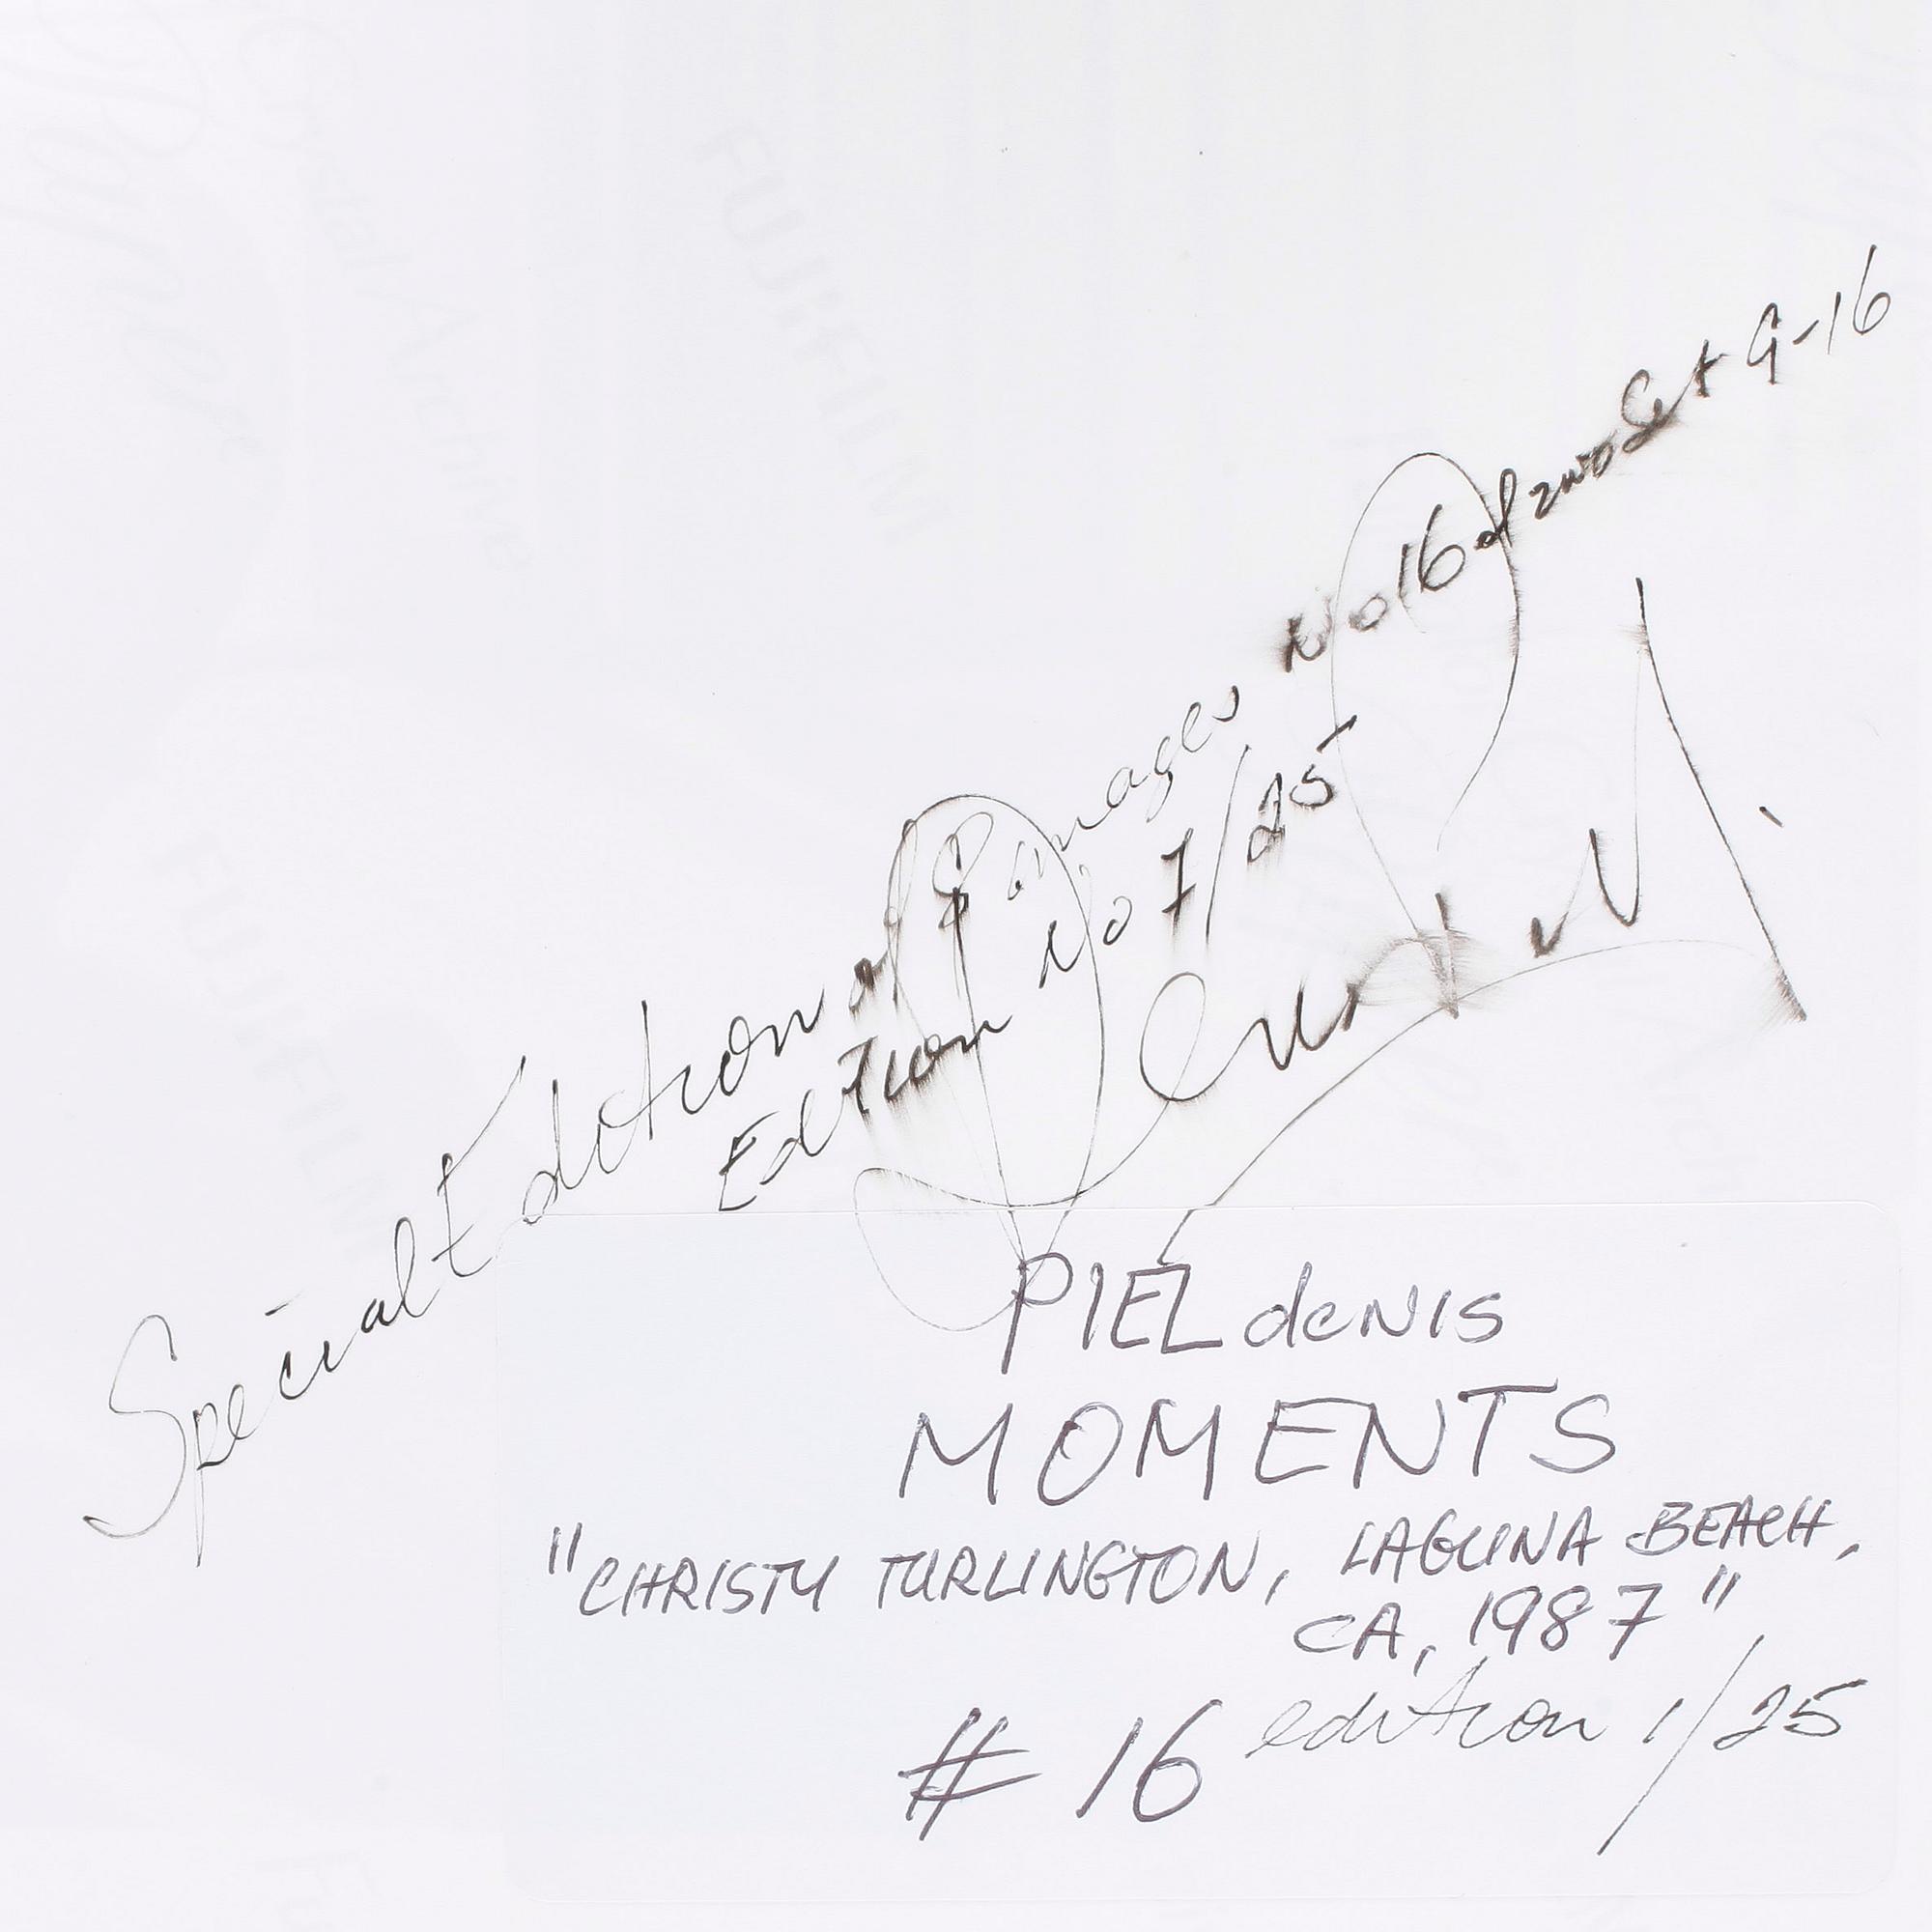 Special Edition of 8 images No 16 of 2nd Set 9-16
Edition No 7/25
PIEL denis
MOMENTS
"CHRISTY TURLINGTON, LAGUNA BEACH,
CA, 1987"
# 16 edition 1/25
FUJIFILM
Crystal Archive
Paper
FUJIFILM